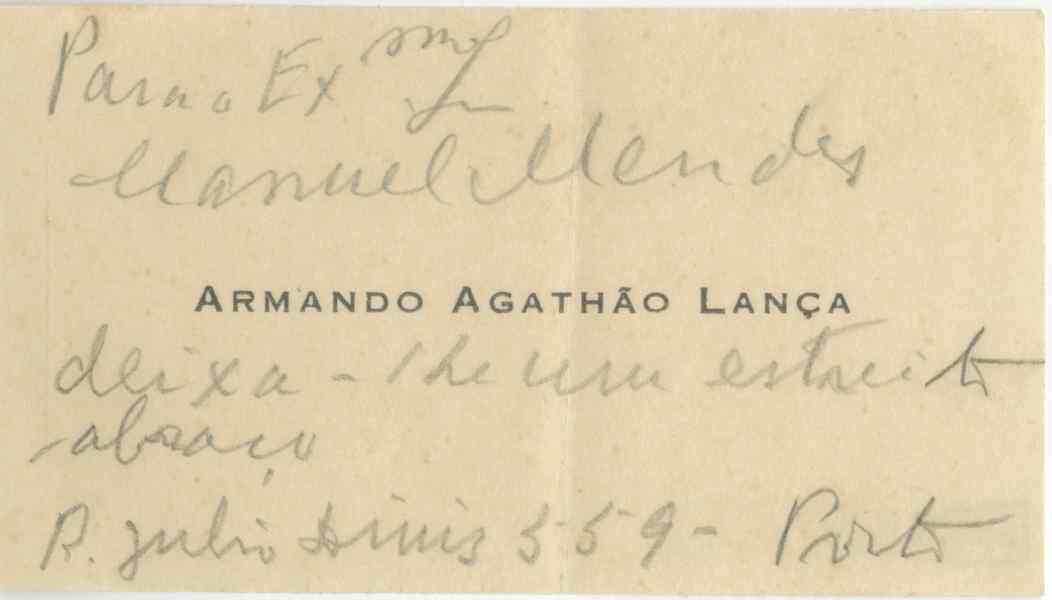 Para o Ex mo Sr
Manuel Mendes
ARMANDO AGATHÃO LANÇA
deixa-lhe um estreito
abraço
R. Julio Dinis 559 - Porto